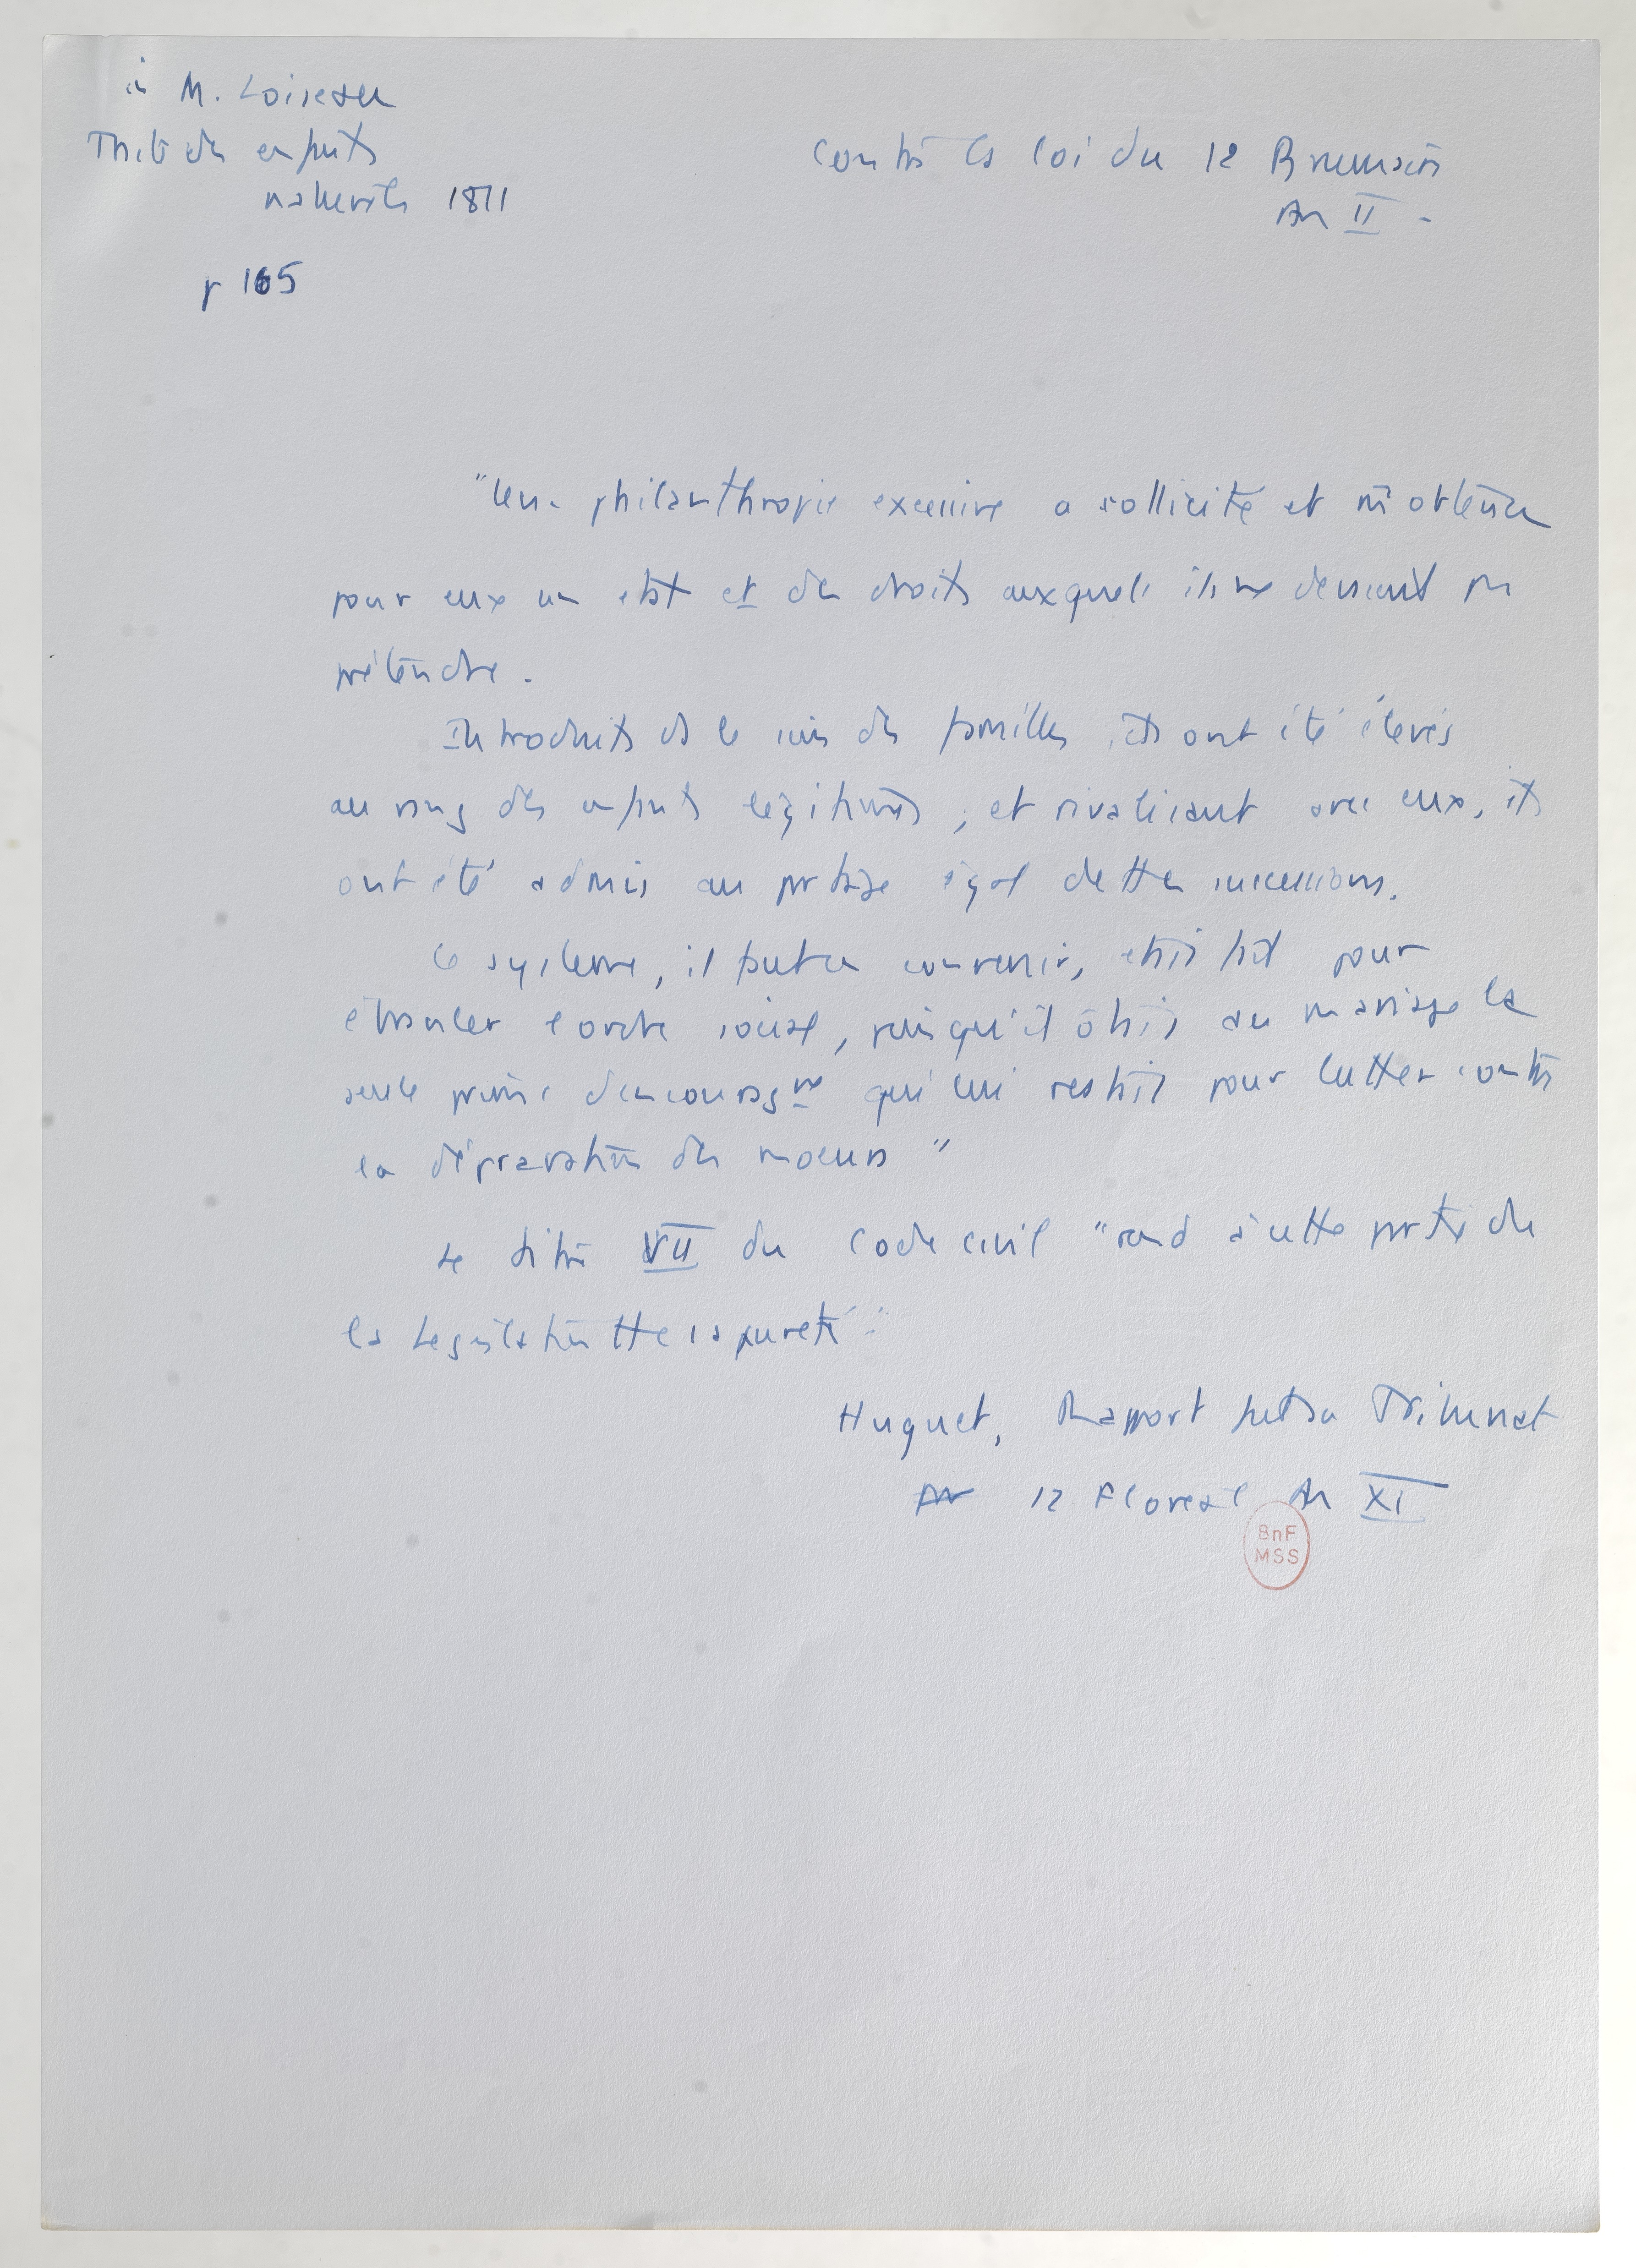 in M. Loiseau
Traité des enfants
naturels 1811
p 165
Contre la loi du 12 Brumaire
An II -
"Une philanthropie excessive a sollicité et obtenu
pour eux un état et des droits auxquels ils ne devaient pas
prétendre.
Introduits ds le sein des familles, ils ont été élevés
au rang des enfants légitimes, et rivalisant avec eux, ils
ont été admis au partage égal de tte successions.
Ce système, il faut en convenir, était fait pour
ébranler l'ordre social, puisqu'il ôtait au mariage la
seule prime d'encouragnt qui lui restait pour lutter contre
la dépravation des moeurs"
Le titre VII du Code civil "rend à cette partie de
la Législation tte sa pureté".
Huguet, Rapport fait au Tribunat
12 Floréal An XI
BnF
MSS